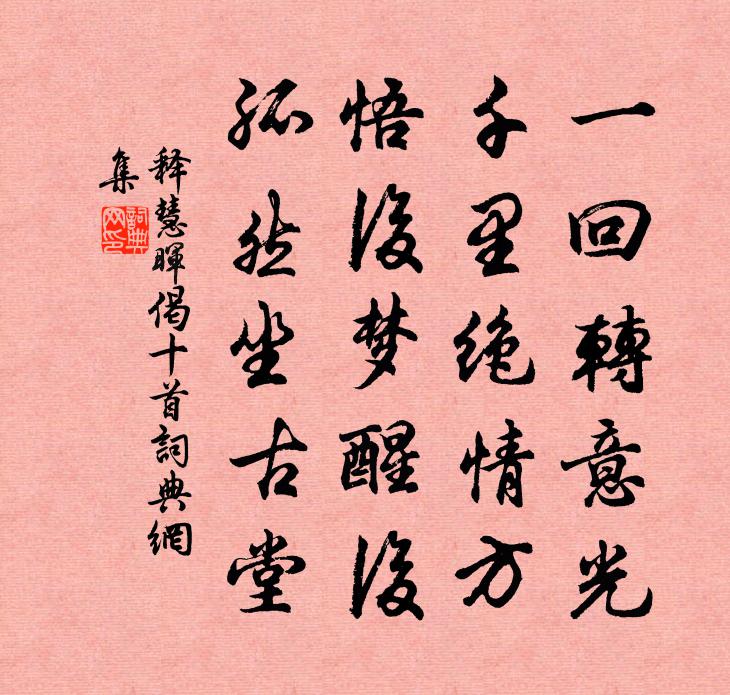 一回轉意光
千里絶情方
悟後梦醒後
孤然坐古堂
释慧暉偈十首詞典網
集
詞典網印